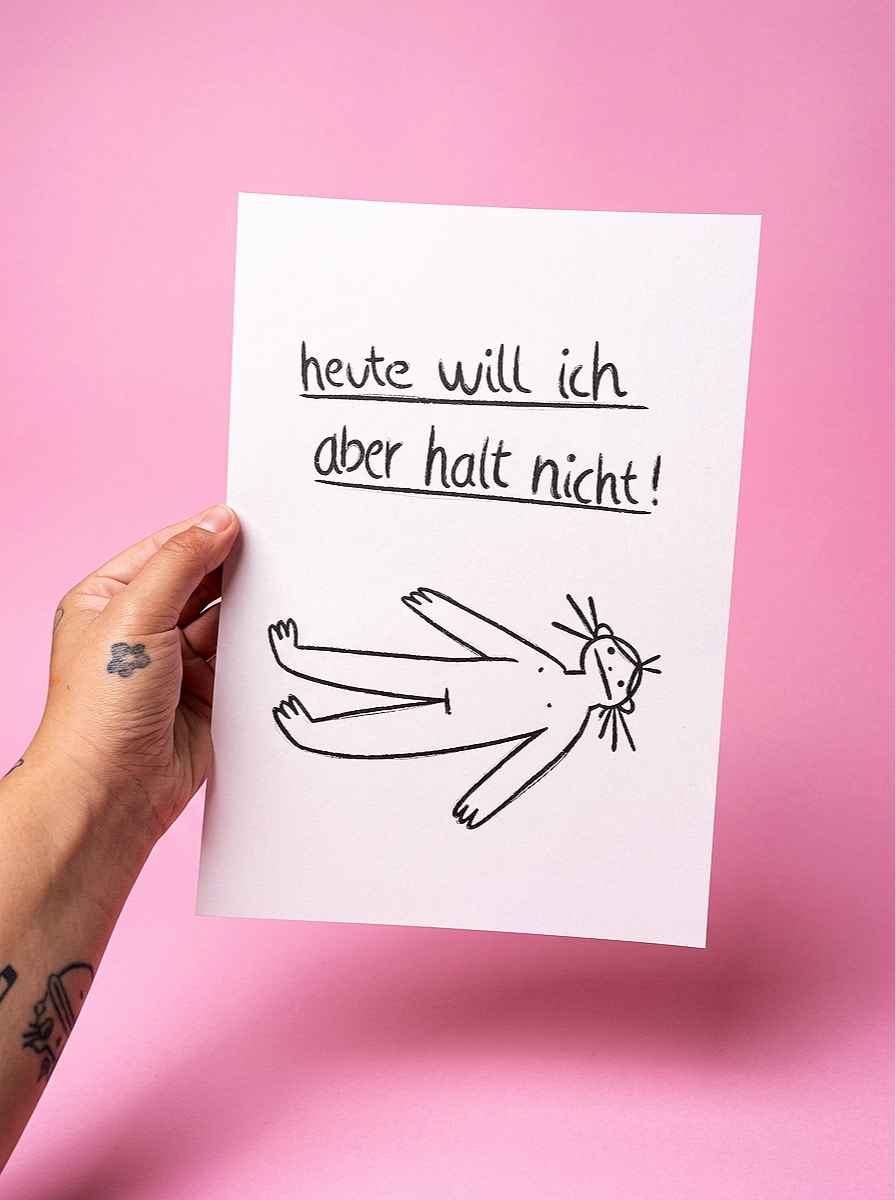 heute will ich
aber halt nicht!